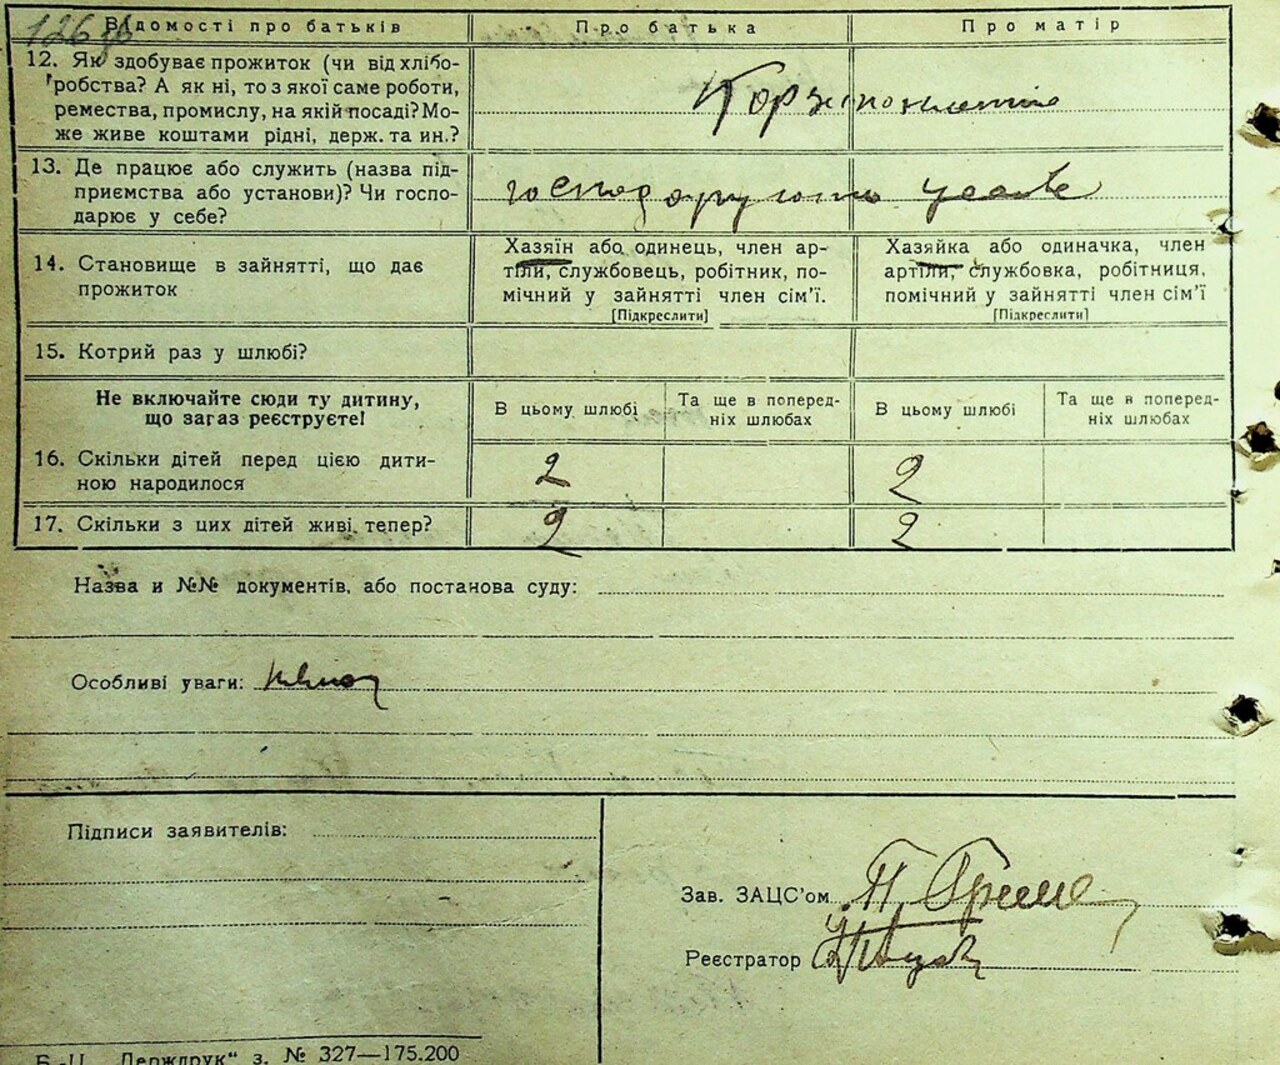 126 зв
Відомості про батьків
Про батька
Про матір
12. Як здобуває прожиток (чи від хлібо-
робства? А як ні, то з якої саме роботи,
ремества, промислу, на якій посаді? Мо-
же живе коштами рідні, держ. та ин.?
13. Де працює або служить (назва під-
приємства або установи)? Чи госпо-
дарює у себе?
господарують у себе
14. Становище в зайнятті, що дає
прожиток
Хазяїн або одинець, член ар-
тіли, службовець, робітник, по-
мічний у зайнятті член сім'ї.
[Підкреслити]
Хазяйка або одиначка, член
артіли, службовка, робітниця,
помічний у зайнятті член сім'ї
[Підкреслити]
15. Котрий раз у шлюбі?
Не включайте сюди ту дитину,
що зараз реєструєте!
В цьому шлюбі
Та ще в поперед-
ніх шлюбах
В цьому шлюбі
Та ще в поперед-
ніх шлюбах
16. Скільки дітей перед цією дити-
ною народилося
2
2
17. Скільки з цих дітей живі тепер?
2
2
Назва и №№ документів, або постанова суду:
Особливі уваги:
Підписи заявителів:
Зав. ЗАЦС'ом
Реєстратор
Б.-Ц. „Держдрук“ з. № 327—175.200